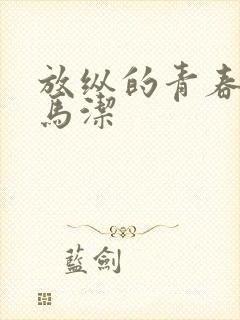 放纵的青春
馬潔
藍劍